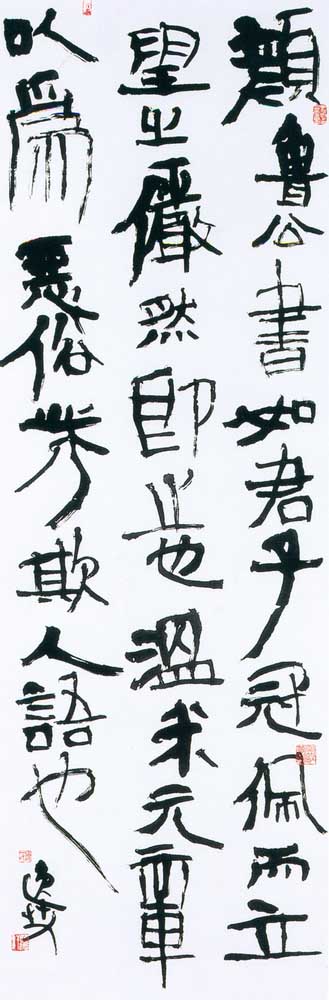 顏魯公書如君子冠佩而立
望之儼然即之也溫米元章
以為惡俗欺人語也